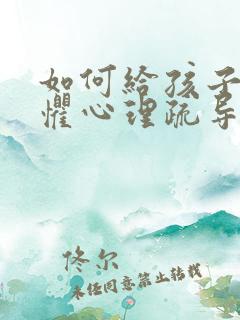 如何给孩子
惧心理疏导
佟尔
未经同意禁止转载